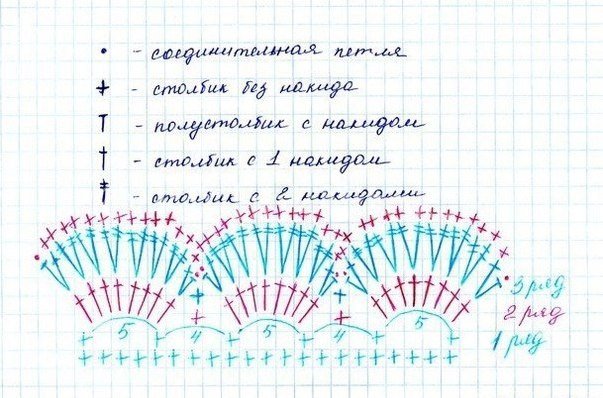 • - соединительная петля
+ - столбик без накида
т - полустолбик с накидом
† - столбик с 1 накидом
‡ - столбик с 2 накидами
3 ряд
2 ряд
1 ряд
5 4 5 4 5